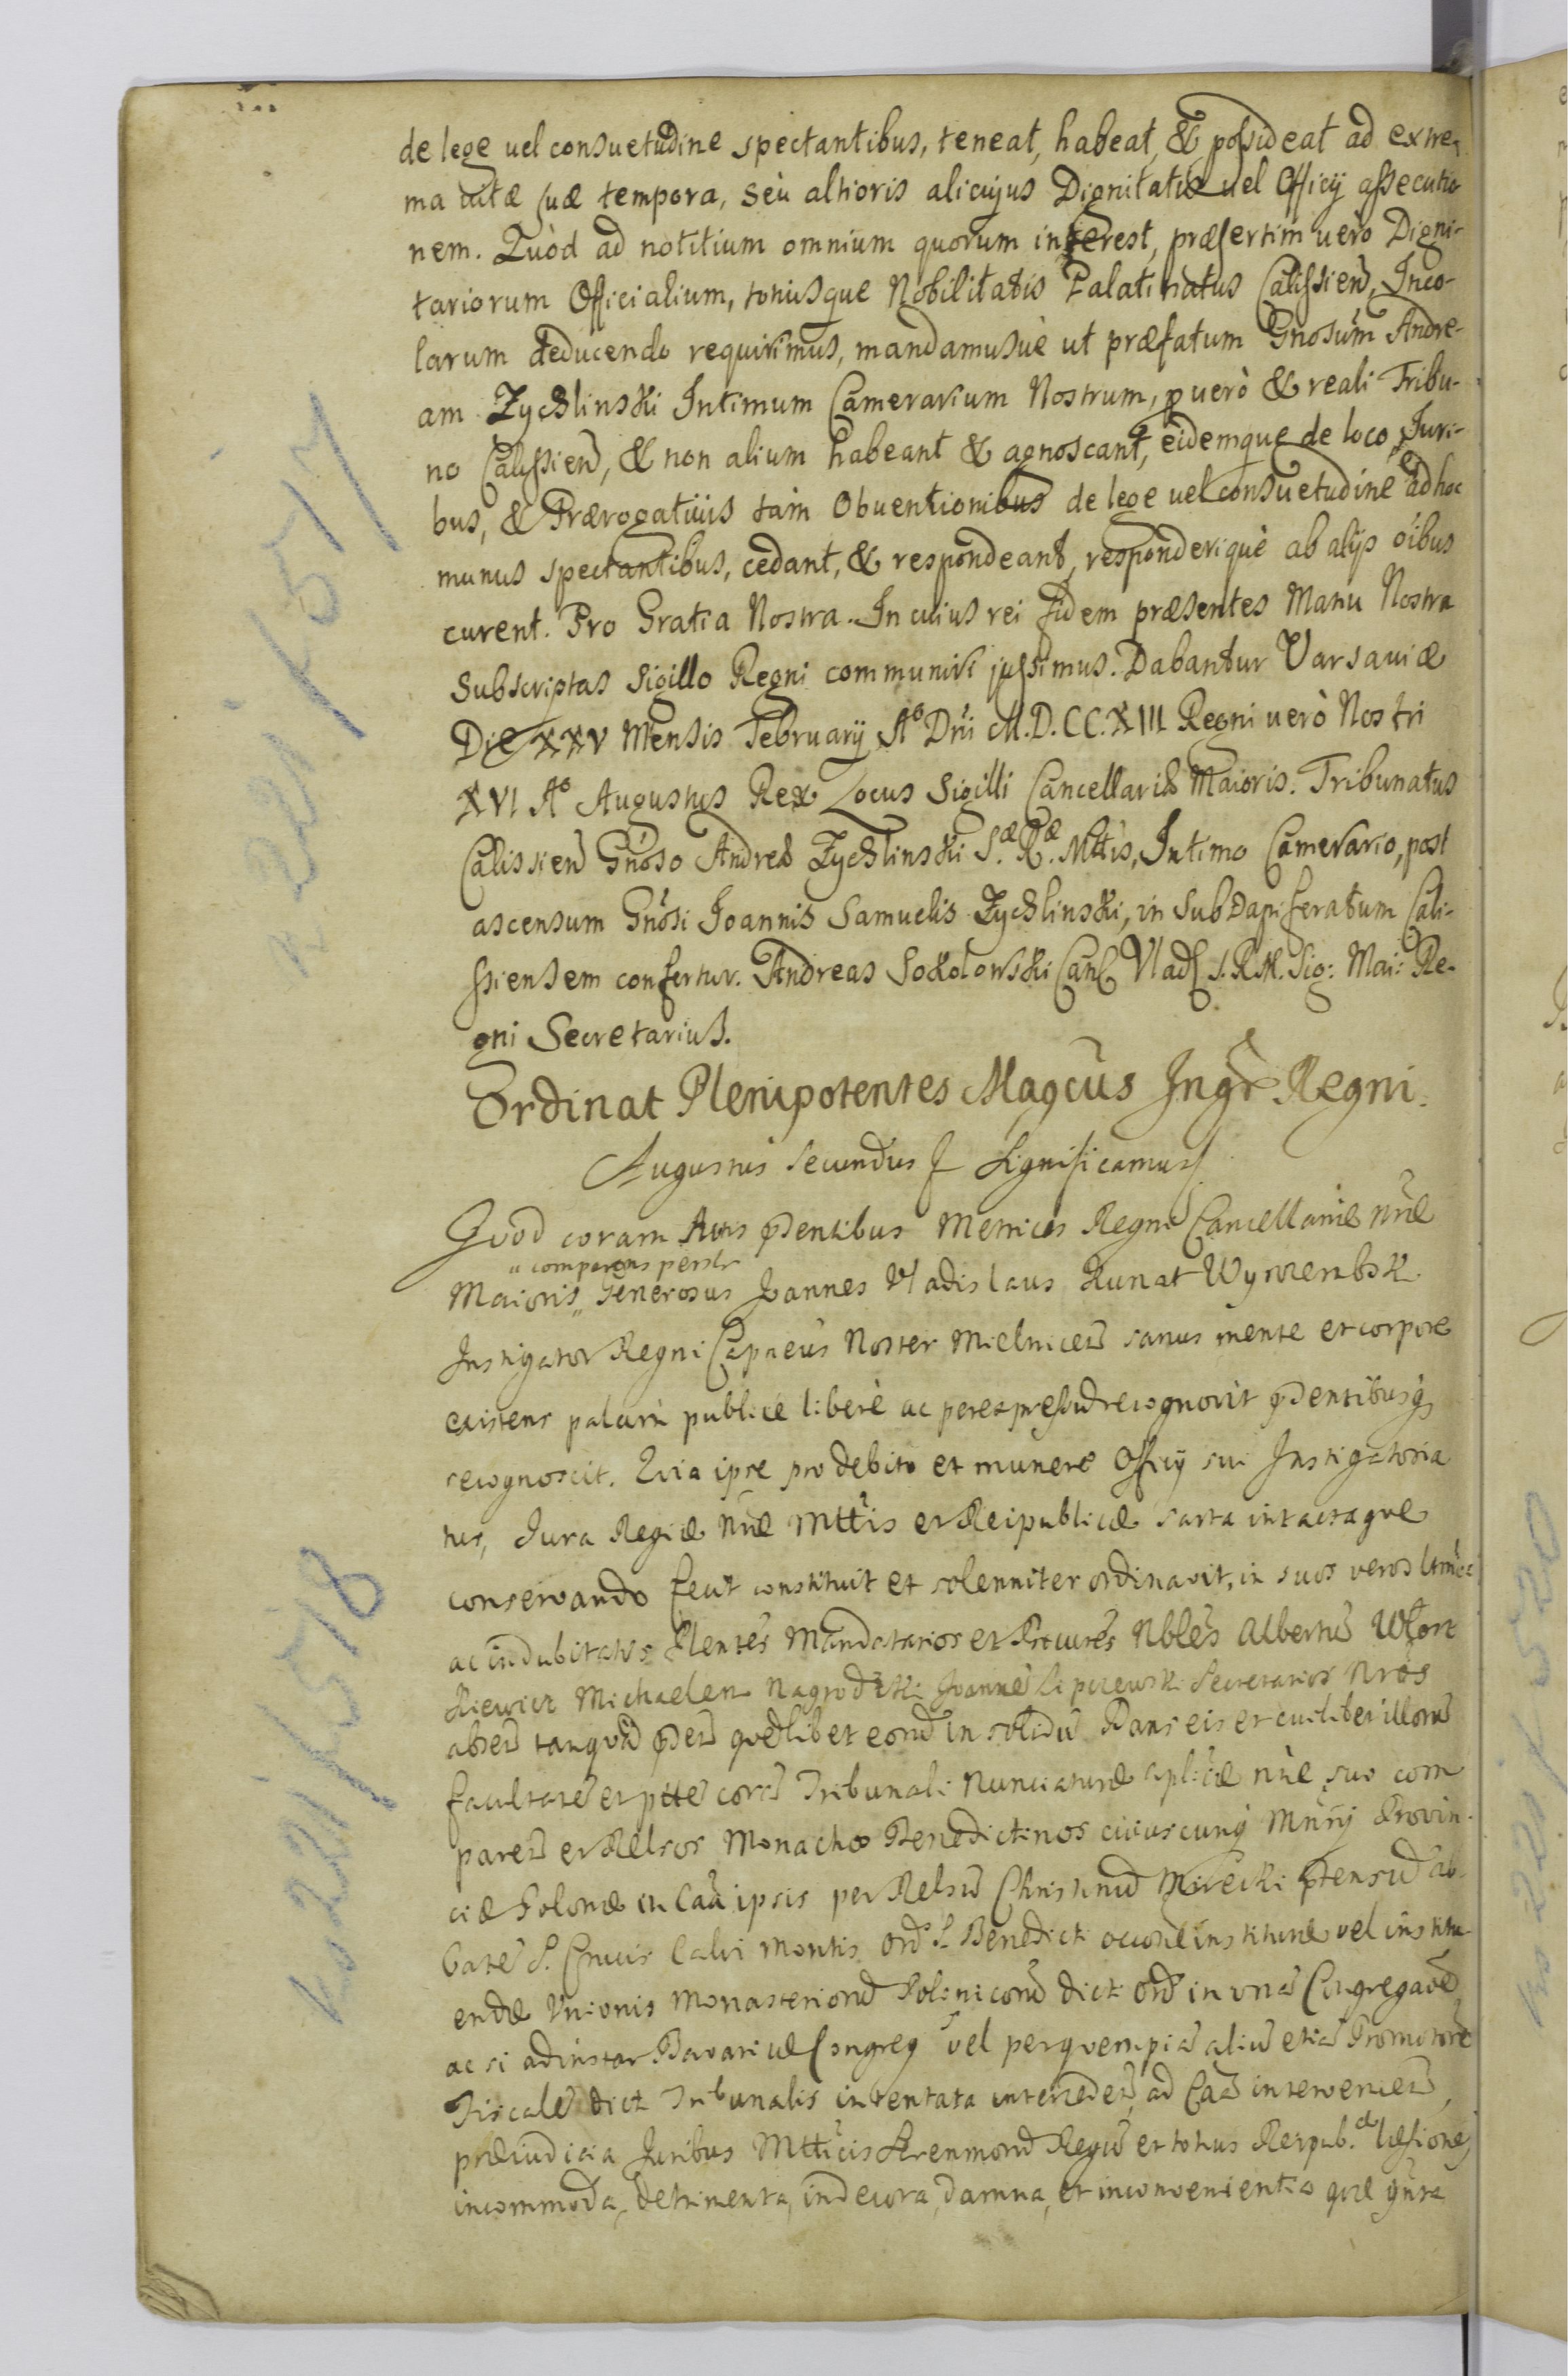 de lege vel consuetudine spectantibus, teneat, habeat, & possideat ad extre-
ma vitæ suæ tempora, seù altioris alicujus Dignitatis vel Officij assecutio
nem. Quòd ad notitium omnium quorum interest, præsertim verò Digni-
tariorum Officialium, totiusque Nobilitatis Palatinatus Calissien, Inco-
larum deducendo requirimus, mandamusvè ut præfatum Gnosum Andre-
am Zychlinski Intimum Camerarium Nostrum, p verò & reali Tribu-
no Calissien, & non alium habeant & agnoscant, eidemque de loco, Juri-
bus, & Prærogativis tàm Obventionibus de lege vel consuetudine ad hoc
munus spectantibus, cedant, & respondeant, responderique ab alijs oibus
curent. Pro Gratia Nostra. In cuius rei fidem præsentes Manu Nostra
Subscriptas Sigillo Regni communiri jussimus. Dabantur Varsaviæ
Die XXV Mensis February Aº Dni M.D.CC.XIII Regni verò Nostri
XVI Aº Augustus Rex Locus Sigilli Cancellariæ Maioris. Tribunatus
Calissien Gnoso Andreæ Zychlinski S.æ R.æ Mttis, Intimo Camerario, post
ascensum Gnosi Joannis Samuelis Zychlinski, in SubDapiferatum Cali-
ssiensem confertur. Andreas Sokolowski Canc Vlad S.R.M. Sig: Mai: Re-
gni Secretarius.
Ordinat Plenipotentes Magcus Ingr Regni.
Augustus Secundus Significamus
Quod coram Actis pntibus Metrices Regni Cancellariæ nræ
" comparens persolr
Maioris " Generosus Joannes Vladislaus Kunat Wyrozembski
Instigator Regni Capneus Noster Mielnicen sanus mente et corpore
existens palam publice liberè ac per expressum recognovit pntibusq
recognoscit. Quia ipse pro debito et munere Officij sui Instigatoria
tus, Jura Regiæ nræ Mttis et Reipublicæ sarta intactaque
conservando fecit constituit et solenniter ordinavit, in suos veros
ac indubitatos Plentes Mandatarios et Procures Nbles Albertu
Michaelem Nagrodzki Joanne Secretarios Nros
absen tanquam pnen quemlibet eorum in solidu Dans eis et cuilibet illoru
facultate et ptte cora Tribunali Nunciaturæ aplicæ nie suo com
paren et Relsos Monachos Benedictinos cuiuscunq Mnrij Provin-
ciæ Polonæ in Caa ipsis per Relsu Christinum Mirecki ab-
bate S. Crucis Calvi Montis Ord S. Benedicti occone institutæ vel institu-
endæ Unionis Monasteriorum Polonicorum dicti Ord in una Congregaoe
ac si ad instar Bavaricæ Congreg vel per quempia aliu etia Promotore
Fiscale dict Tribunalis intentata interceden, ad Caa intervenien,
præiudicia Juribus Mtticis Regu et totius Reipub. læsiones
incommoda, detrimenta, indecora, damna, et inconvenientia quæ
k 221 f 517
k. 221 f 518